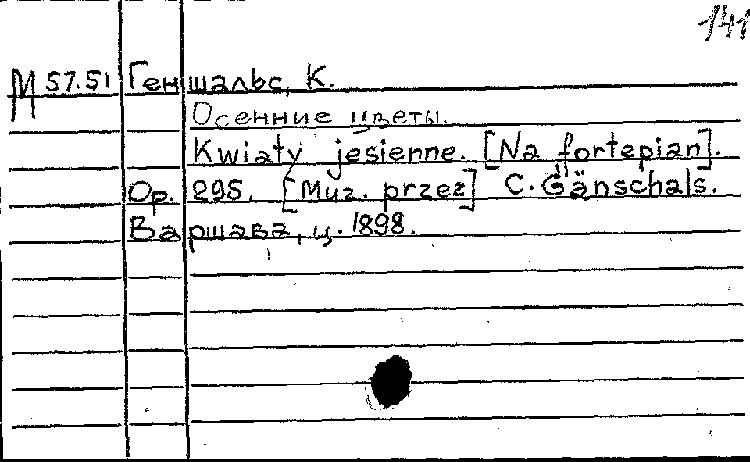 141
М 57.51 Геншальс, К.
Осенние цветы.
Kwiaty jesienne. [Na fortepian].
Op. 295. [Muz. przez] C. Gänschals.
Варшава, ц. 1898.